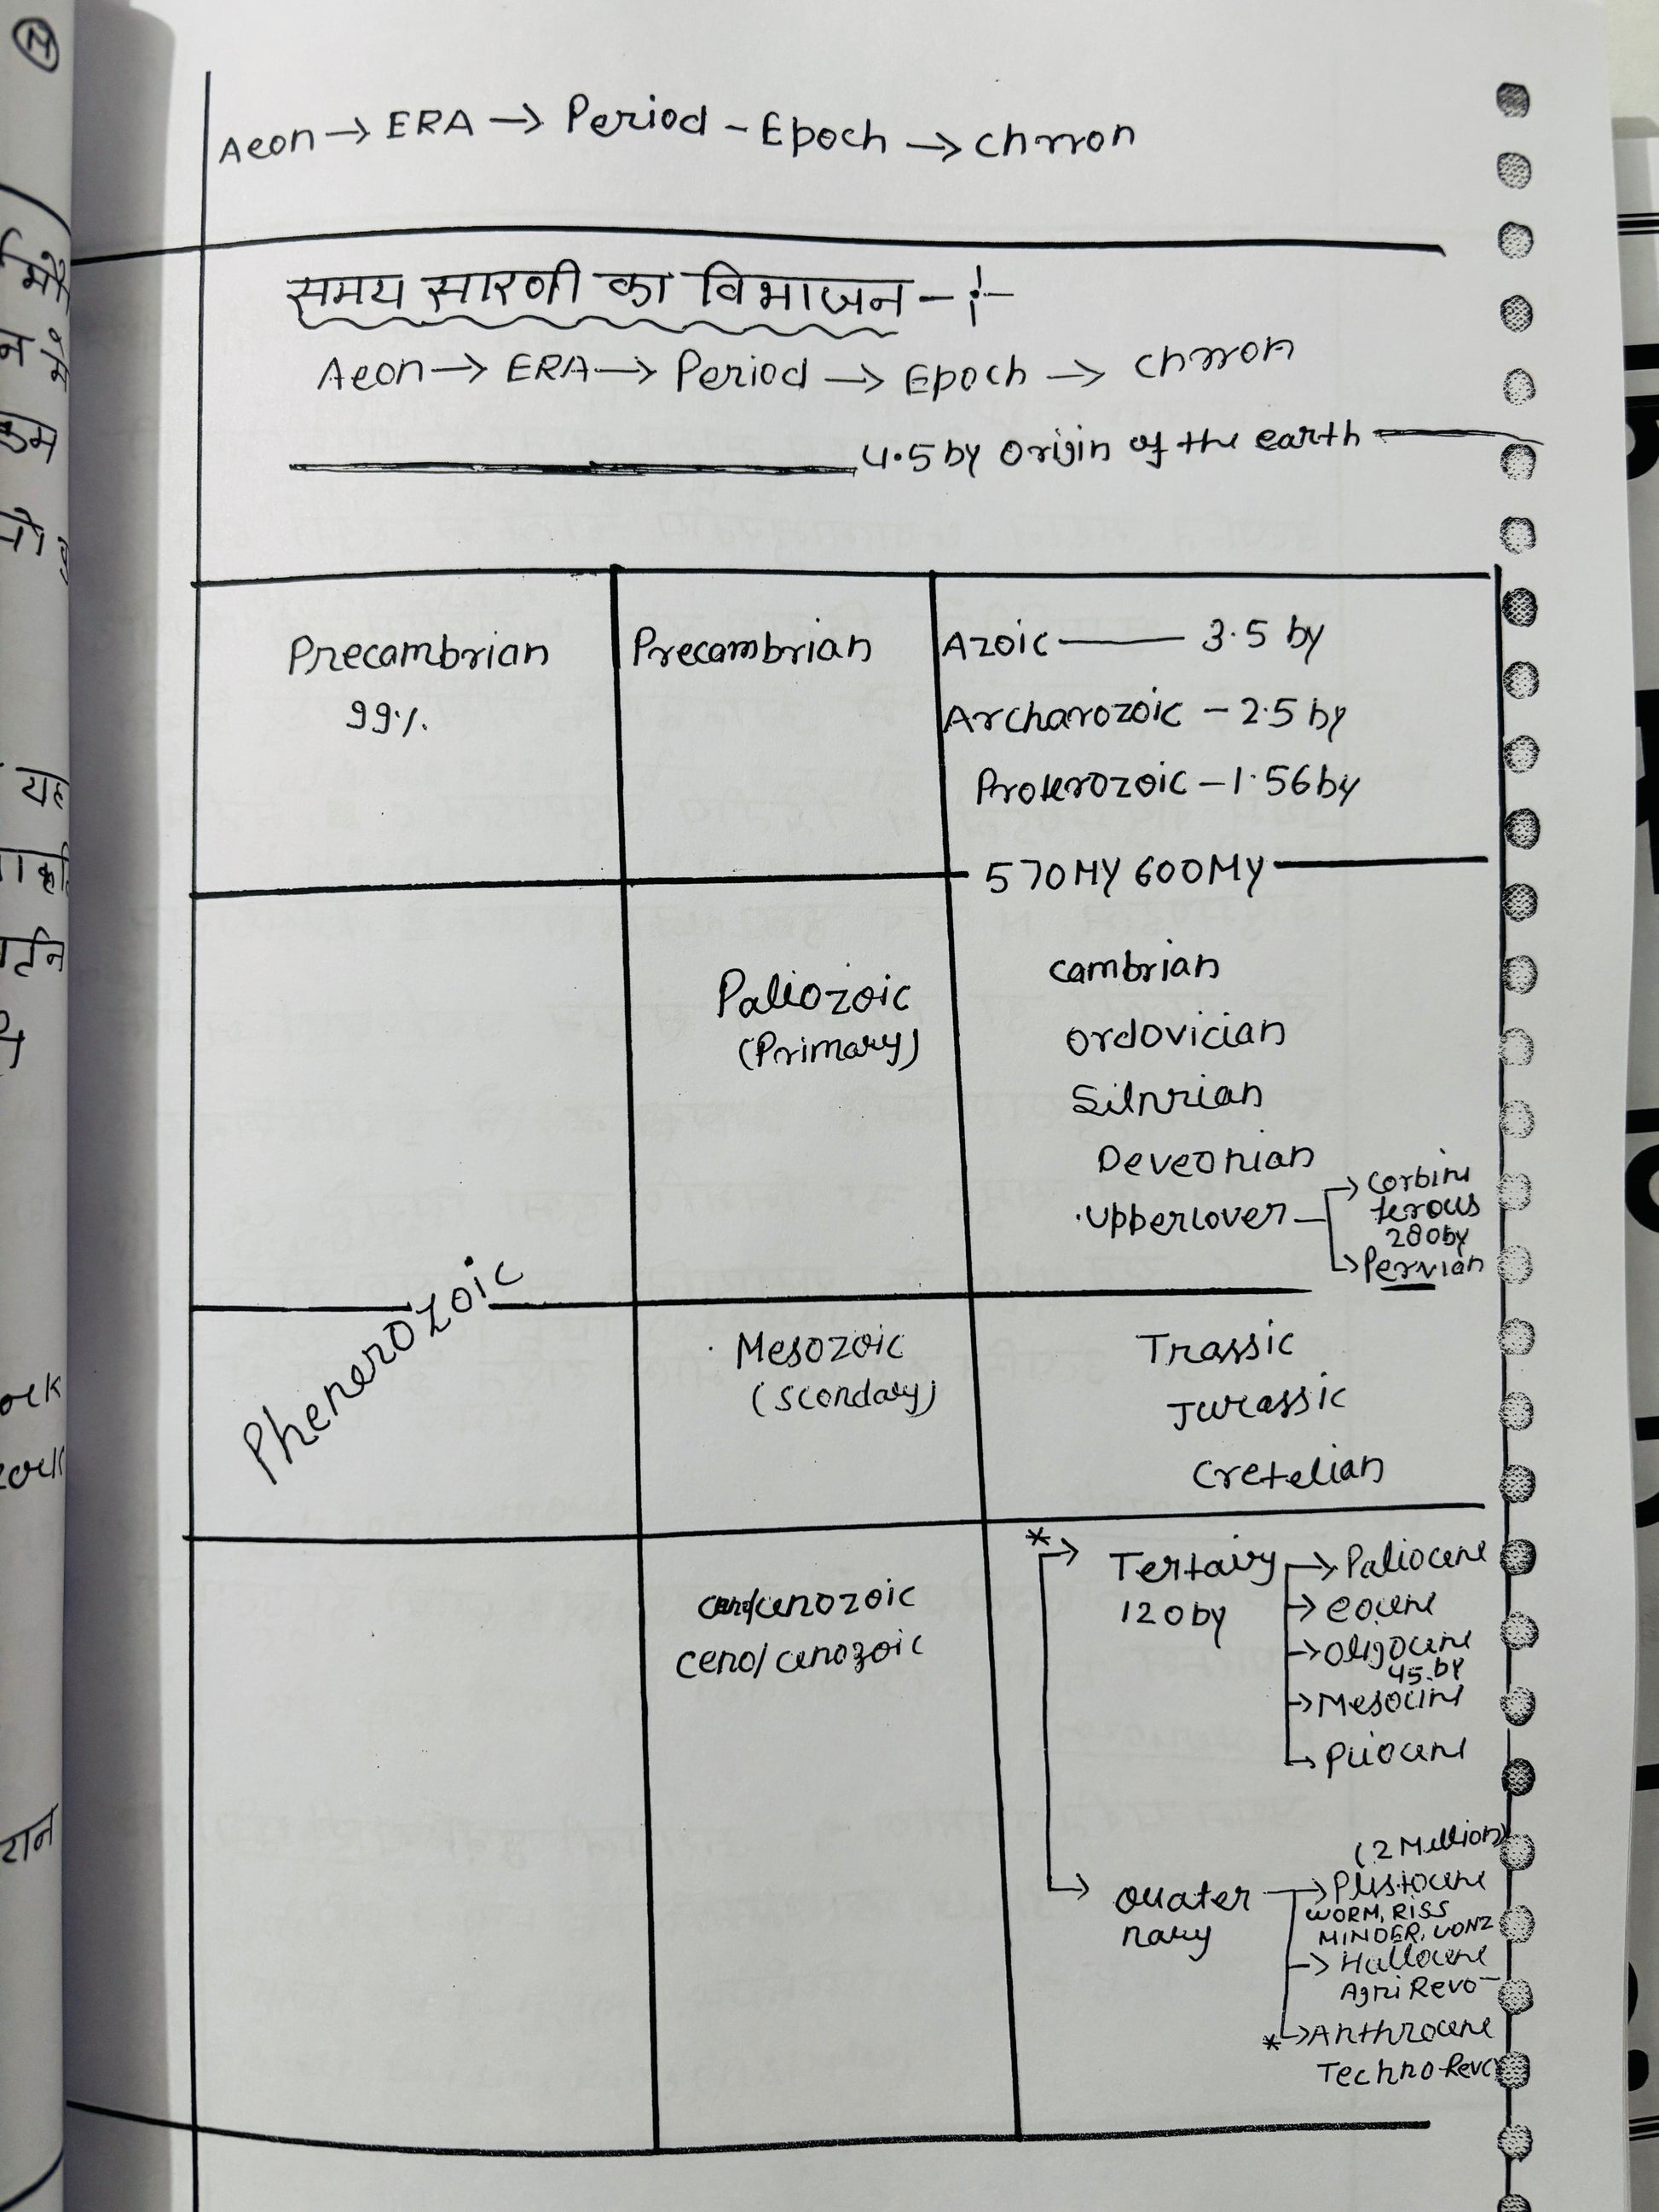 Aeon → ERA → Period - Epoch → Chrron
समय सारणी का विभाजन -:-
Aeon → ERA → Period → Epoch → Chrron
4.5 by Origin of the earth
Precambrian
99%
Precambrian
Azoic — 3.5 by
Archarozoic - 2.5 by
Proterozoic - 1.56 by
570 MY 600 MY
Phenerozoic
Paliozoic
(Primary)
Cambrian
Ordovician
Silurian
Deveonian
Upperlover → Corbini
ferous
280by
→ Permian
Mesozoic
(Scondary)
Trassic
Jurassic
Cretelian
cenozoic
Ceno/cenozoic
* → Tertairy → Paliocene
120by → eocene
→ Oligocene
45.by
→ Mesocine
→ Pliocene
(2 Million)
→ Quater → Plistocene
nary
WORM, RISS
MINDER, UONZ
→ Hallocene
Agri Revo-
* → Anthrocene
Techno Revo
M
यह